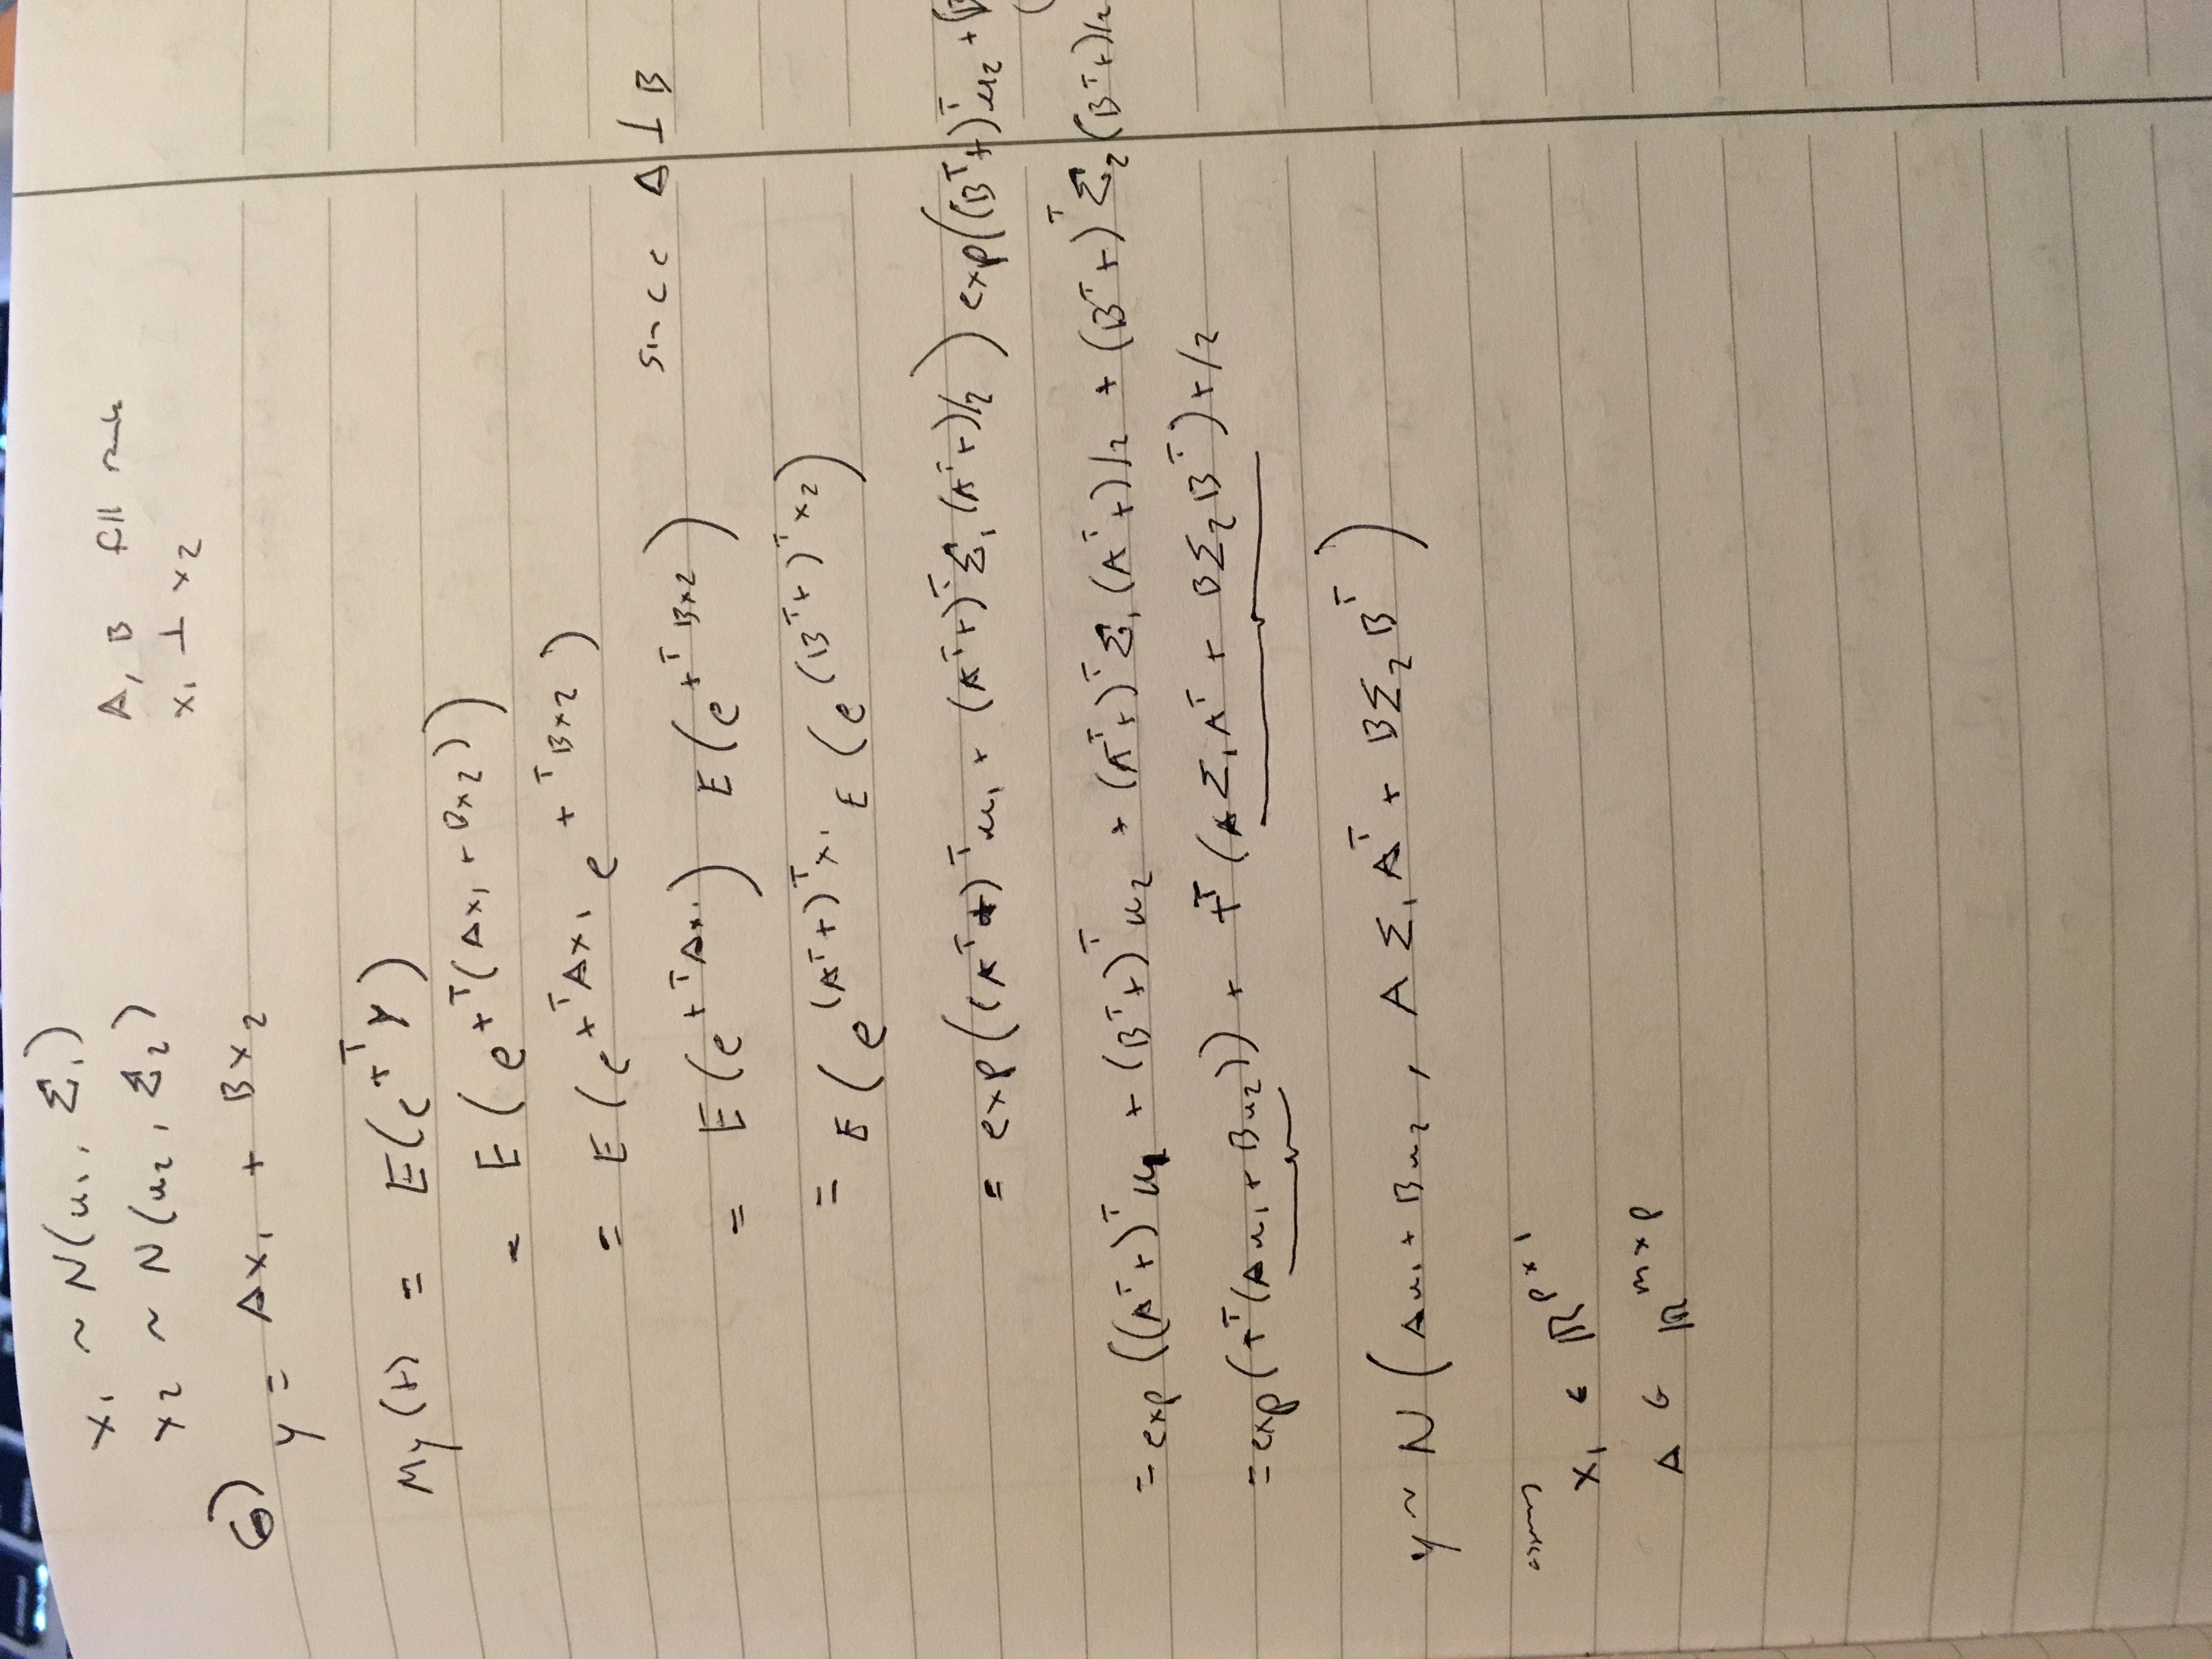 x₁ ~ N(u₁, Σ₁)
x₂ ~ N(u₂, Σ₂)
A, B full rank
x₁ ⊥ x₂
6) y = Ax₁ + Bx₂
My(t) = E(e^{t^T y})
= E(e^{t^T(Ax₁ + Bx₂)})
= E(e^{t^T Ax₁} e^{t^T Bx₂})
= E(e^{t^T Ax₁}) E(e^{t^T Bx₂}) since A ⊥ B
= E(e^{(A^T t)^T x₁} E(e^{(B^T t)^T x₂})
= exp((A^T t)^T u₁ + (A^T t)^T Σ₁ (A^T t)/2) exp((B^T t)^T u₂ + (B
= exp((A^T t)^T u₁ + (B^T t)^T u₂ + (A^T t)^T Σ₁ (A^T t)/2 + (B^T t)^T Σ₂ (B^T t)/2
= exp(t^T(Au₁ + Bu₂)) + t^T(AΣ₁A^T + BΣ₂B^T)t/2
y ~ N(Au₁ + Bu₂, AΣ₁A^T + BΣ₂B^T)
x₁ ∈ ℝ^{p×1}
A ∈ ℝ^{m×p}